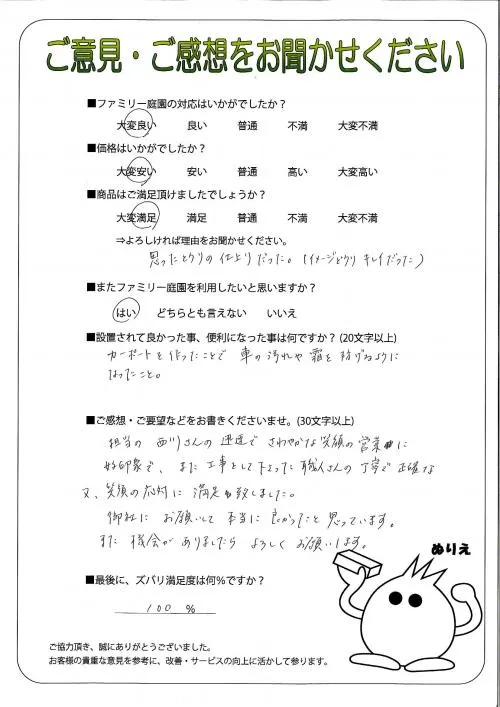 ご意見・ご感想をお聞かせください
■ファミリー庭園の対応はいかがでしたか？
大変良い 良い 普通 不満 大変不満
■価格はいかがでしたか？
大変安い 安い 普通 高い 大変高い
■商品はご満足頂けましたでしょうか？
大変満足 満足 普通 不満 大変不満
⇒よろしければ理由をお聞かせください。
思ったとうりの仕上りだった。(イメージどうり キレイだった)
■またファミリー庭園を利用したいと思いますか？
はい どちらとも言えない いいえ
■設置されて良かった事、便利になった事は何ですか？(20文字以上)
カーポートを作ったことで 車の汚れや 霜を防げるように
なったこと。
■ご感想・ご要望などをお書きくださいませ。(30文字以上)
担当の 西川さんの 迅速で さわやかな笑顔の営業に
好印象で、また工事をして下さった職人さんの丁寧で正確な
又、笑顔の応対に満足致しました。
御社に お願いして 本当に良かったと思っています。
また 機会が ありましたら よろしく お願いします。
ぬりえ
■最後に、ズバリ満足度は何％ですか？
100 %
ご協力頂き、誠にありがとうございました。
お客様の貴重な意見を参考に、改善・サービスの向上に活かして参ります。